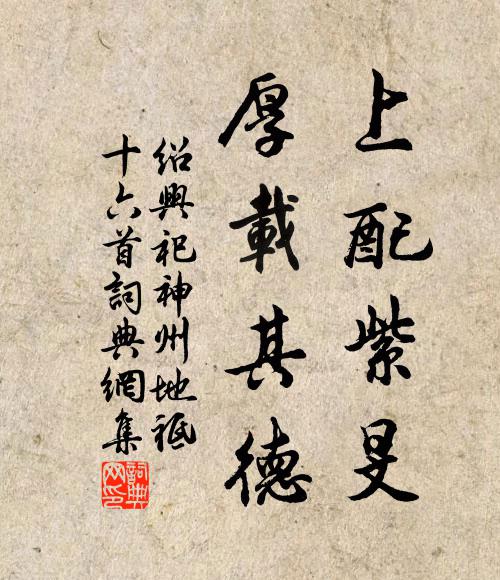 上配紫旻
厚載其德
紹興祀神州地祇
十六首詞典網集
詞典網印